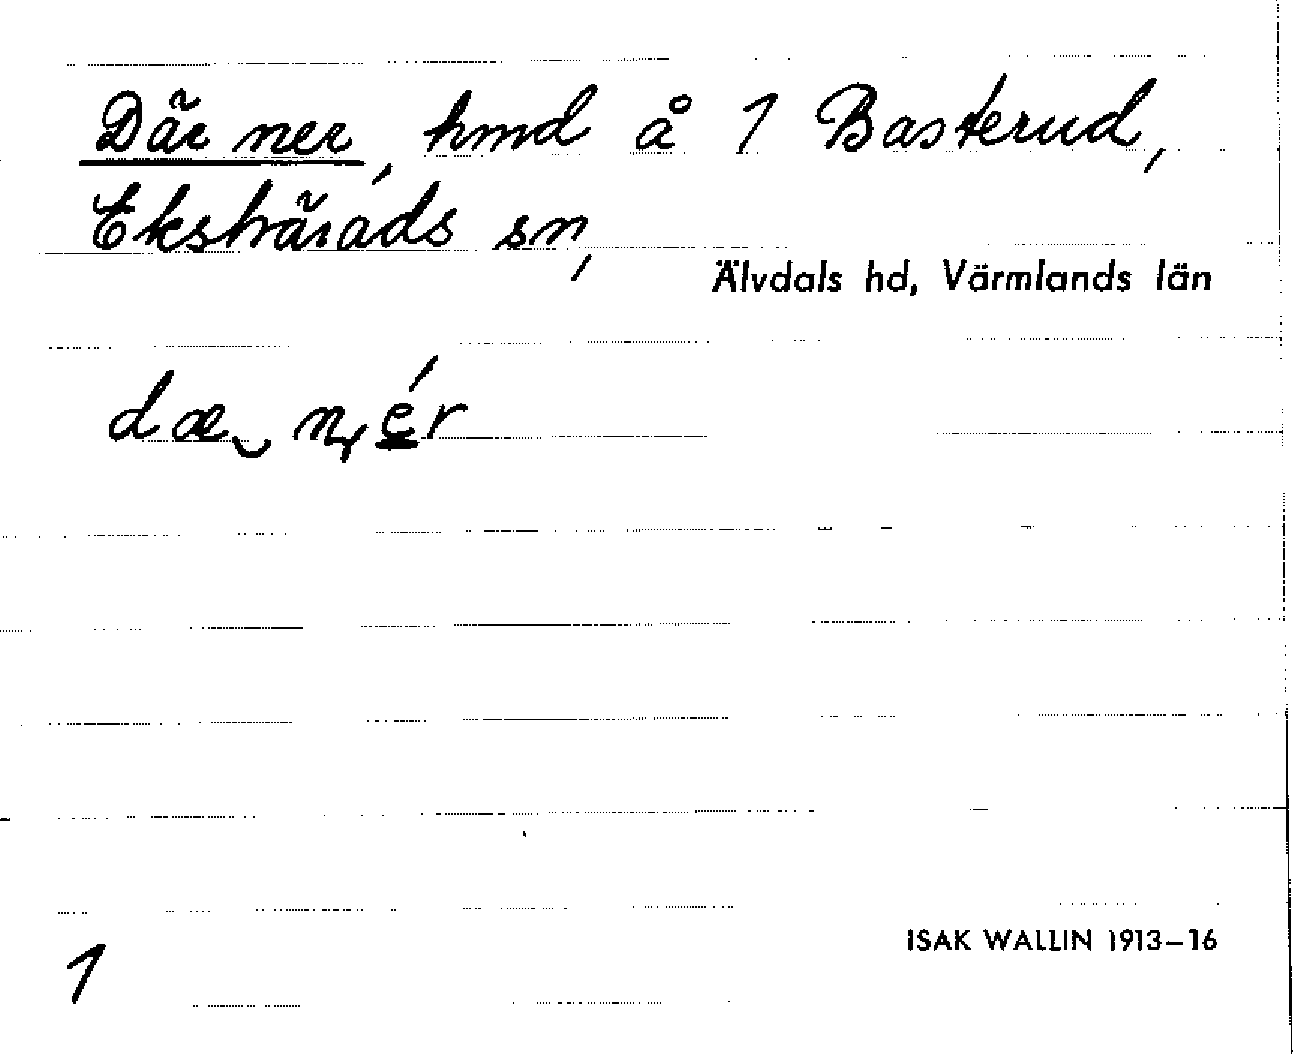 Där ner, hmd å 1 Basterud,
Ekshärads sn,
Älvdals hd, Värmlands län
dæ‿ n
ISAK WALLIN 1913–16
1